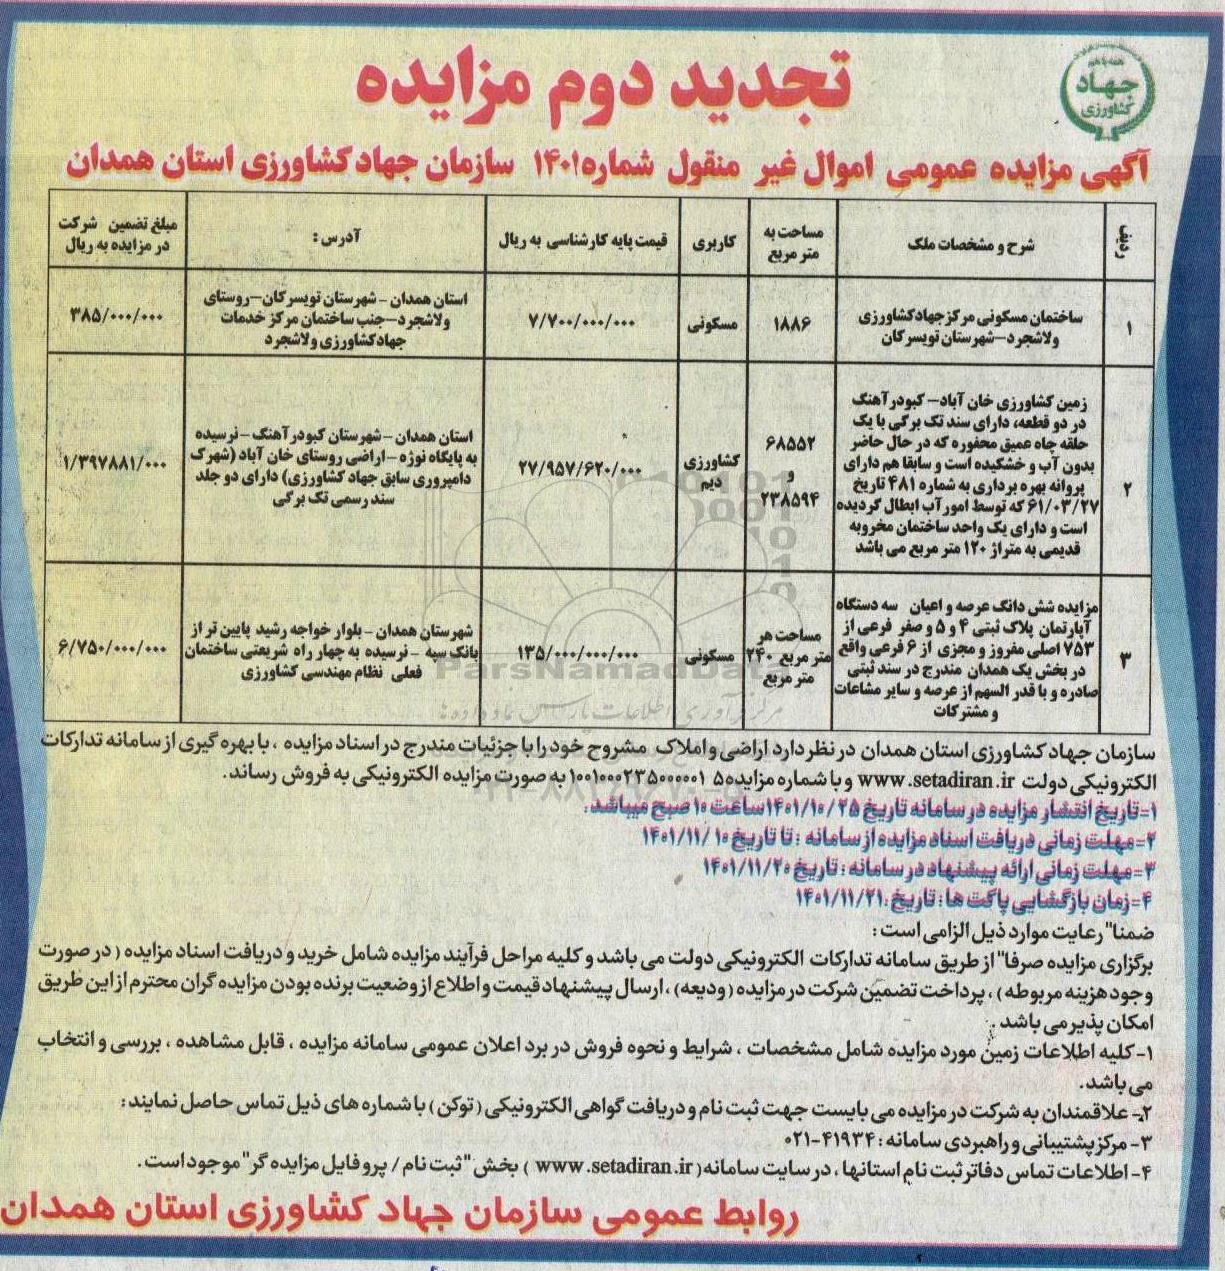 همه با هم
جهاد
کشاورزی
تجدید دوم مزایده
آگهی مزایده عمومی اموال غیر منقول شماره ۱۴۰۱ سازمان جهاد کشاورزی استان همدان
ردیف
شرح و مشخصات ملک
مساحت به
متر مربع
کاربری
قیمت پایه کارشناسی به ریال
آدرس :
مبلغ تضمین شرکت
در مزایده به ریال
۱
ساختمان مسکونی مرکز جهاد کشاورزی
ولاشجرد–شهرستان تویسرکان
۱۸۸۶
مسکونی
۷/۷۰۰/۰۰۰/۰۰۰
استان همدان – شهرستان تویسرکان–روستای
ولاشجرد–جنب ساختمان مرکز خدمات
جهاد کشاورزی ولاشجرد
۳۸۵/۰۰۰/۰۰۰
۲
زمین کشاورزی خان آباد– کبودرآهنگ
در دو قطعه، دارای سند تک برگی با یک
حلقه چاه عمیق محفوره که در حال حاضر
بدون آب و خشکیده است و سابقا هم دارای
پروانه بهره برداری به شماره ۴۸۱ تاریخ
۶۱/۰۳/۲۷ که توسط امور آب ابطال گردیده
است و دارای یک واحد ساختمان مخروبه
قدیمی به متراژ ۱۲۰ متر مربع می باشد
۶۸۵۵۲
و
۲۳۸۵۹۴
کشاورزی
دیم
۲۷/۹۵۷/۶۲۰/۰۰۰
استان همدان –شهرستان کبودرآهنگ –نرسیده
به پایگاه نوژه –اراضی روستای خان آباد (شهرک
دامپروری سابق جهاد کشاورزی) دارای دو جلد
سند رسمی تک برگی
۱/۳۹۷۸۸۱/۰۰۰
۳
مزایده شش دانگ عرصه و اعیان سه دستگاه
آپارتمان پلاک ثبتی ۴ و ۵ و صفر فرعی از
۷۵۳ اصلی مفروز و مجزی از ۶ فرعی واقع
در بخش یک همدان مندرج در سند ثبتی
صادره و با قدر السهم از عرصه و سایر مشاعات
و مشترکات
مساحت هر
متر مربع ۲۴۰
متر مربع
مسکونی
۱۳۵/۰۰۰/۰۰۰/۰۰۰
شهرستان همدان – بلوار خواجه رشید پایین تر از
بانک سپه – نرسیده به چهار راه شریعتی ساختمان
فعلی نظام مهندسی کشاورزی
۶/۷۵۰/۰۰۰/۰۰۰
ParsNamadData
سازمان جهاد کشاورزی استان همدان در نظر دارد اراضی و املاک مشروح خود را با جزئیات مندرج در اسناد مزایده ، با بهره گیری از سامانه تدارکات
الکترونیکی دولت www.setadiran.ir و با شماره مزایده۵ ۱۰۰۱۰۰۰۲۳۵۰۰۰۰۰۱ به صورت مزایده الکترونیکی به فروش رساند.
۱-تاریخ انتشار مزایده در سامانه تاریخ ۱۴۰۱/۱۰/۲۵ساعت ۱۰ صبح میباشد.
۲-مهلت زمانی دریافت اسناد مزایده از سامانه : تا تاریخ ۱۴۰۱/۱۱/۱۰
۳-مهلت زمانی ارائه پیشنهاد در سامانه : تاریخ ۱۴۰۱/۱۱/۲۰
۴-زمان بازگشایی پاکت ها : تاریخ ۱۴۰۱/۱۱/۲۱
ضمنا" رعایت موارد ذیل الزامی است :
برگزاری مزایده صرفا" از طریق سامانه تدارکات الکترونیکی دولت می باشد و کلیه مراحل فرآیند مزایده شامل خرید و دریافت اسناد مزایده ( در صورت
وجود هزینه مربوطه ) ، پرداخت تضمین شرکت در مزایده ( ودیعه ) ، ارسال پیشنهاد قیمت و اطلاع از وضعیت برنده بودن مزایده گران محترم از این طریق
امکان پذیر می باشد .
۱-کلیه اطلاعات زمین مورد مزایده شامل مشخصات ، شرایط و نحوه فروش در برد اعلان عمومی سامانه مزایده ، قابل مشاهده ، بررسی و انتخاب
می باشد.
۲- علاقمندان به شرکت در مزایده می بایست جهت ثبت نام و دریافت گواهی الکترونیکی ( توکن ) با شماره های ذیل تماس حاصل نمایند :
۳- مرکز پشتیبانی و راهبردی سامانه : ۴۱۹۳۴-۰۲۱
۴- اطلاعات تماس دفاتر ثبت نام استانها ، در سایت سامانه ( www.setadiran.ir ) بخش "ثبت نام / پروفایل مزایده گر" موجود است .
روابط عمومی سازمان جهاد کشاورزی استان همدان